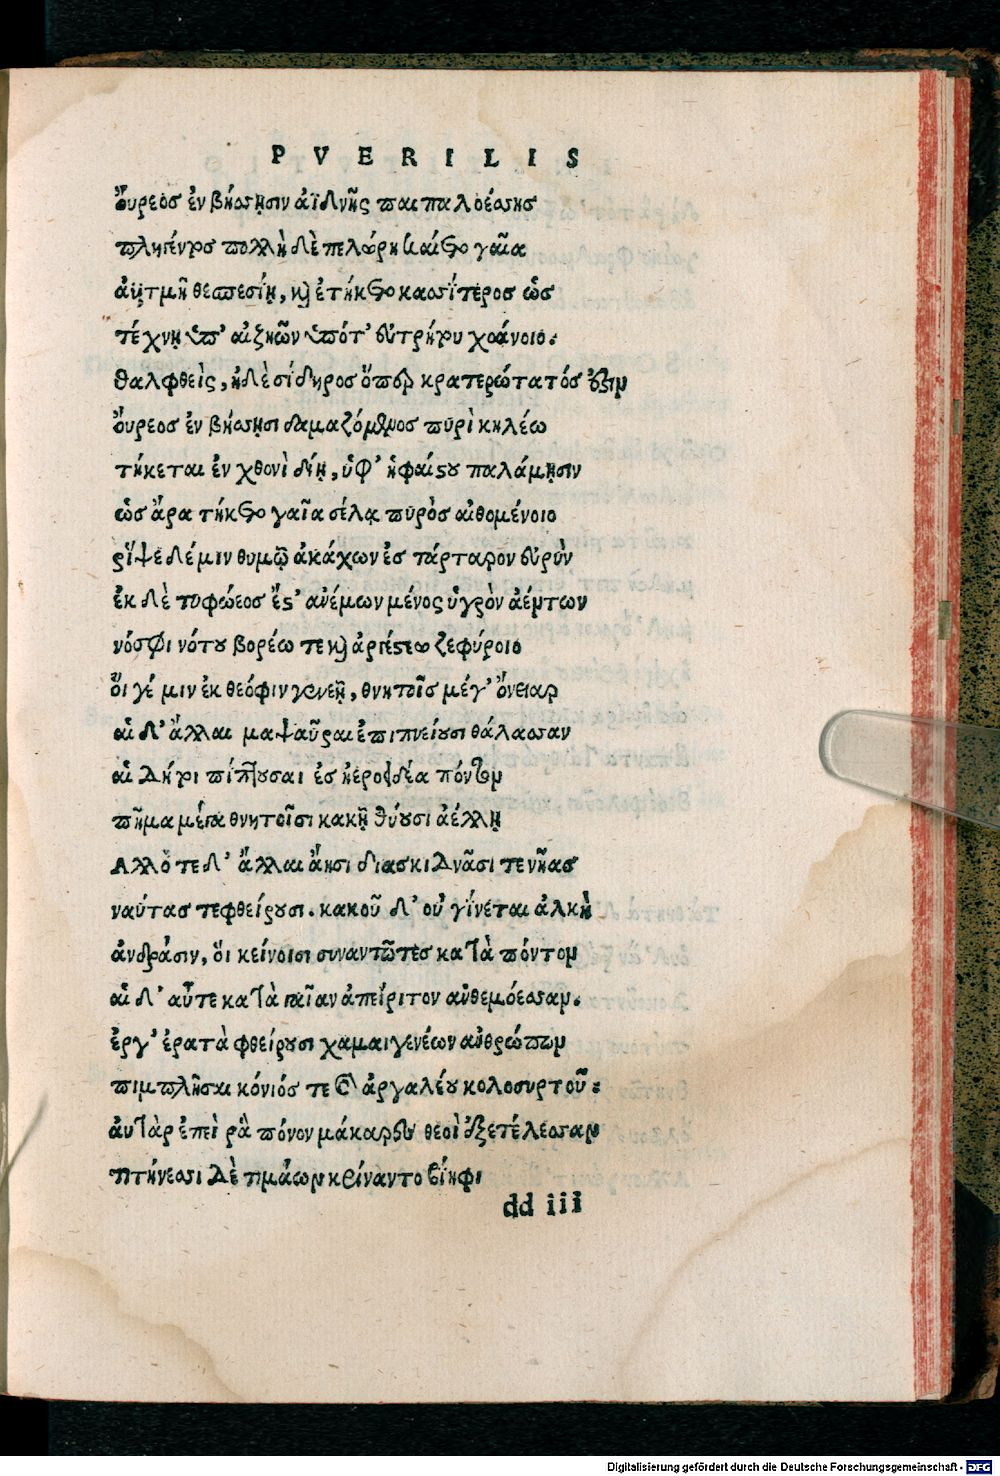 PVERILIS
ὄυρεος ἐν βήσσῃσιν ἀϊδνῆς παιπαλοέσσης
πληγέντος πολλὴ δὲ πελώρη καίετο γαῖα
ἀϋτμῇ θεσπεσίῃ, καὶ ἐτήκετο κασσίτερος ὡς
τέχνῃ ὑπ' αἰζηῶν ὑπότ' ἐυτρήτου χοάνοιο.
θαλφθεὶς, ἠδὲ σίδηρος ὅπερ κρατερώτατός ἐστιν
ὄυρεος ἐν βήσσῃσι δαμαζόμενος πυρὶ κηλέω
τήκεται ἐν χθονὶ δίῃ, ὑφ' ἡφαίστου παλάμῃσιν
ὡς ἄρα τήκετο γαῖα σέλᾳ πυρὸς αἰθομένοιο
ῥίψε δέ μιν θυμῷ ἀκάχων ἐς τάρταρον εὐρύν
ἐκ δὲ τυφώεος ἔστ' ἀνέμων μένος ὑγρὸν ἀέντων
νόσφι νότου βορέω τε καὶ ἀργέστεω ζεφύροιο
ὅι γέ μιν ἐκ θεόφιν γενεῇ, θνητοῖς μέγ' ὄνειαρ
αἱ δ' ἄλλαι μαψαῦραι ἐπιπνείουσι θάλασσαν
αἱ δήτοι πίπτουσαι ἐς ἠεροειδέα πόντον
πῆμα μέγα θνητοῖσι κακῇ θύουσι ἀέλλῃ
Αλλότε δ' ἄλλαι ἄησι διασκιδνᾶσι τε νῆας
ναύτας τε φθείρουσι. κακοῦ δ' οὐ γίνεται ἀλκὴ
ἀνδράσιν, ὅι κείνοισι συναντῶτες κατὰ πόντον
αἱ δ' αὖτε κατὰ γαῖαν ἀπείριτον ἀνθεμόεσσαν.
ἔργ' ἐρατὰ φθείρουσι χαμαιγενέων ἀνθρώπων
πιμπλῆσαι κόνιός τε καὶ ἀργαλέου κολοσυρτοῦ:
ἀυτὰρ ἐπεὶ ῥὰ πόνον μάκαρες θεοὶ ἐξετέλεσσαν
τιτήνεσσι δὲ τιμάων κρίναντο βίηφι
dd iii
Digitalisierung gefördert durch die Deutsche Forschungsgemeinschaft - DFG